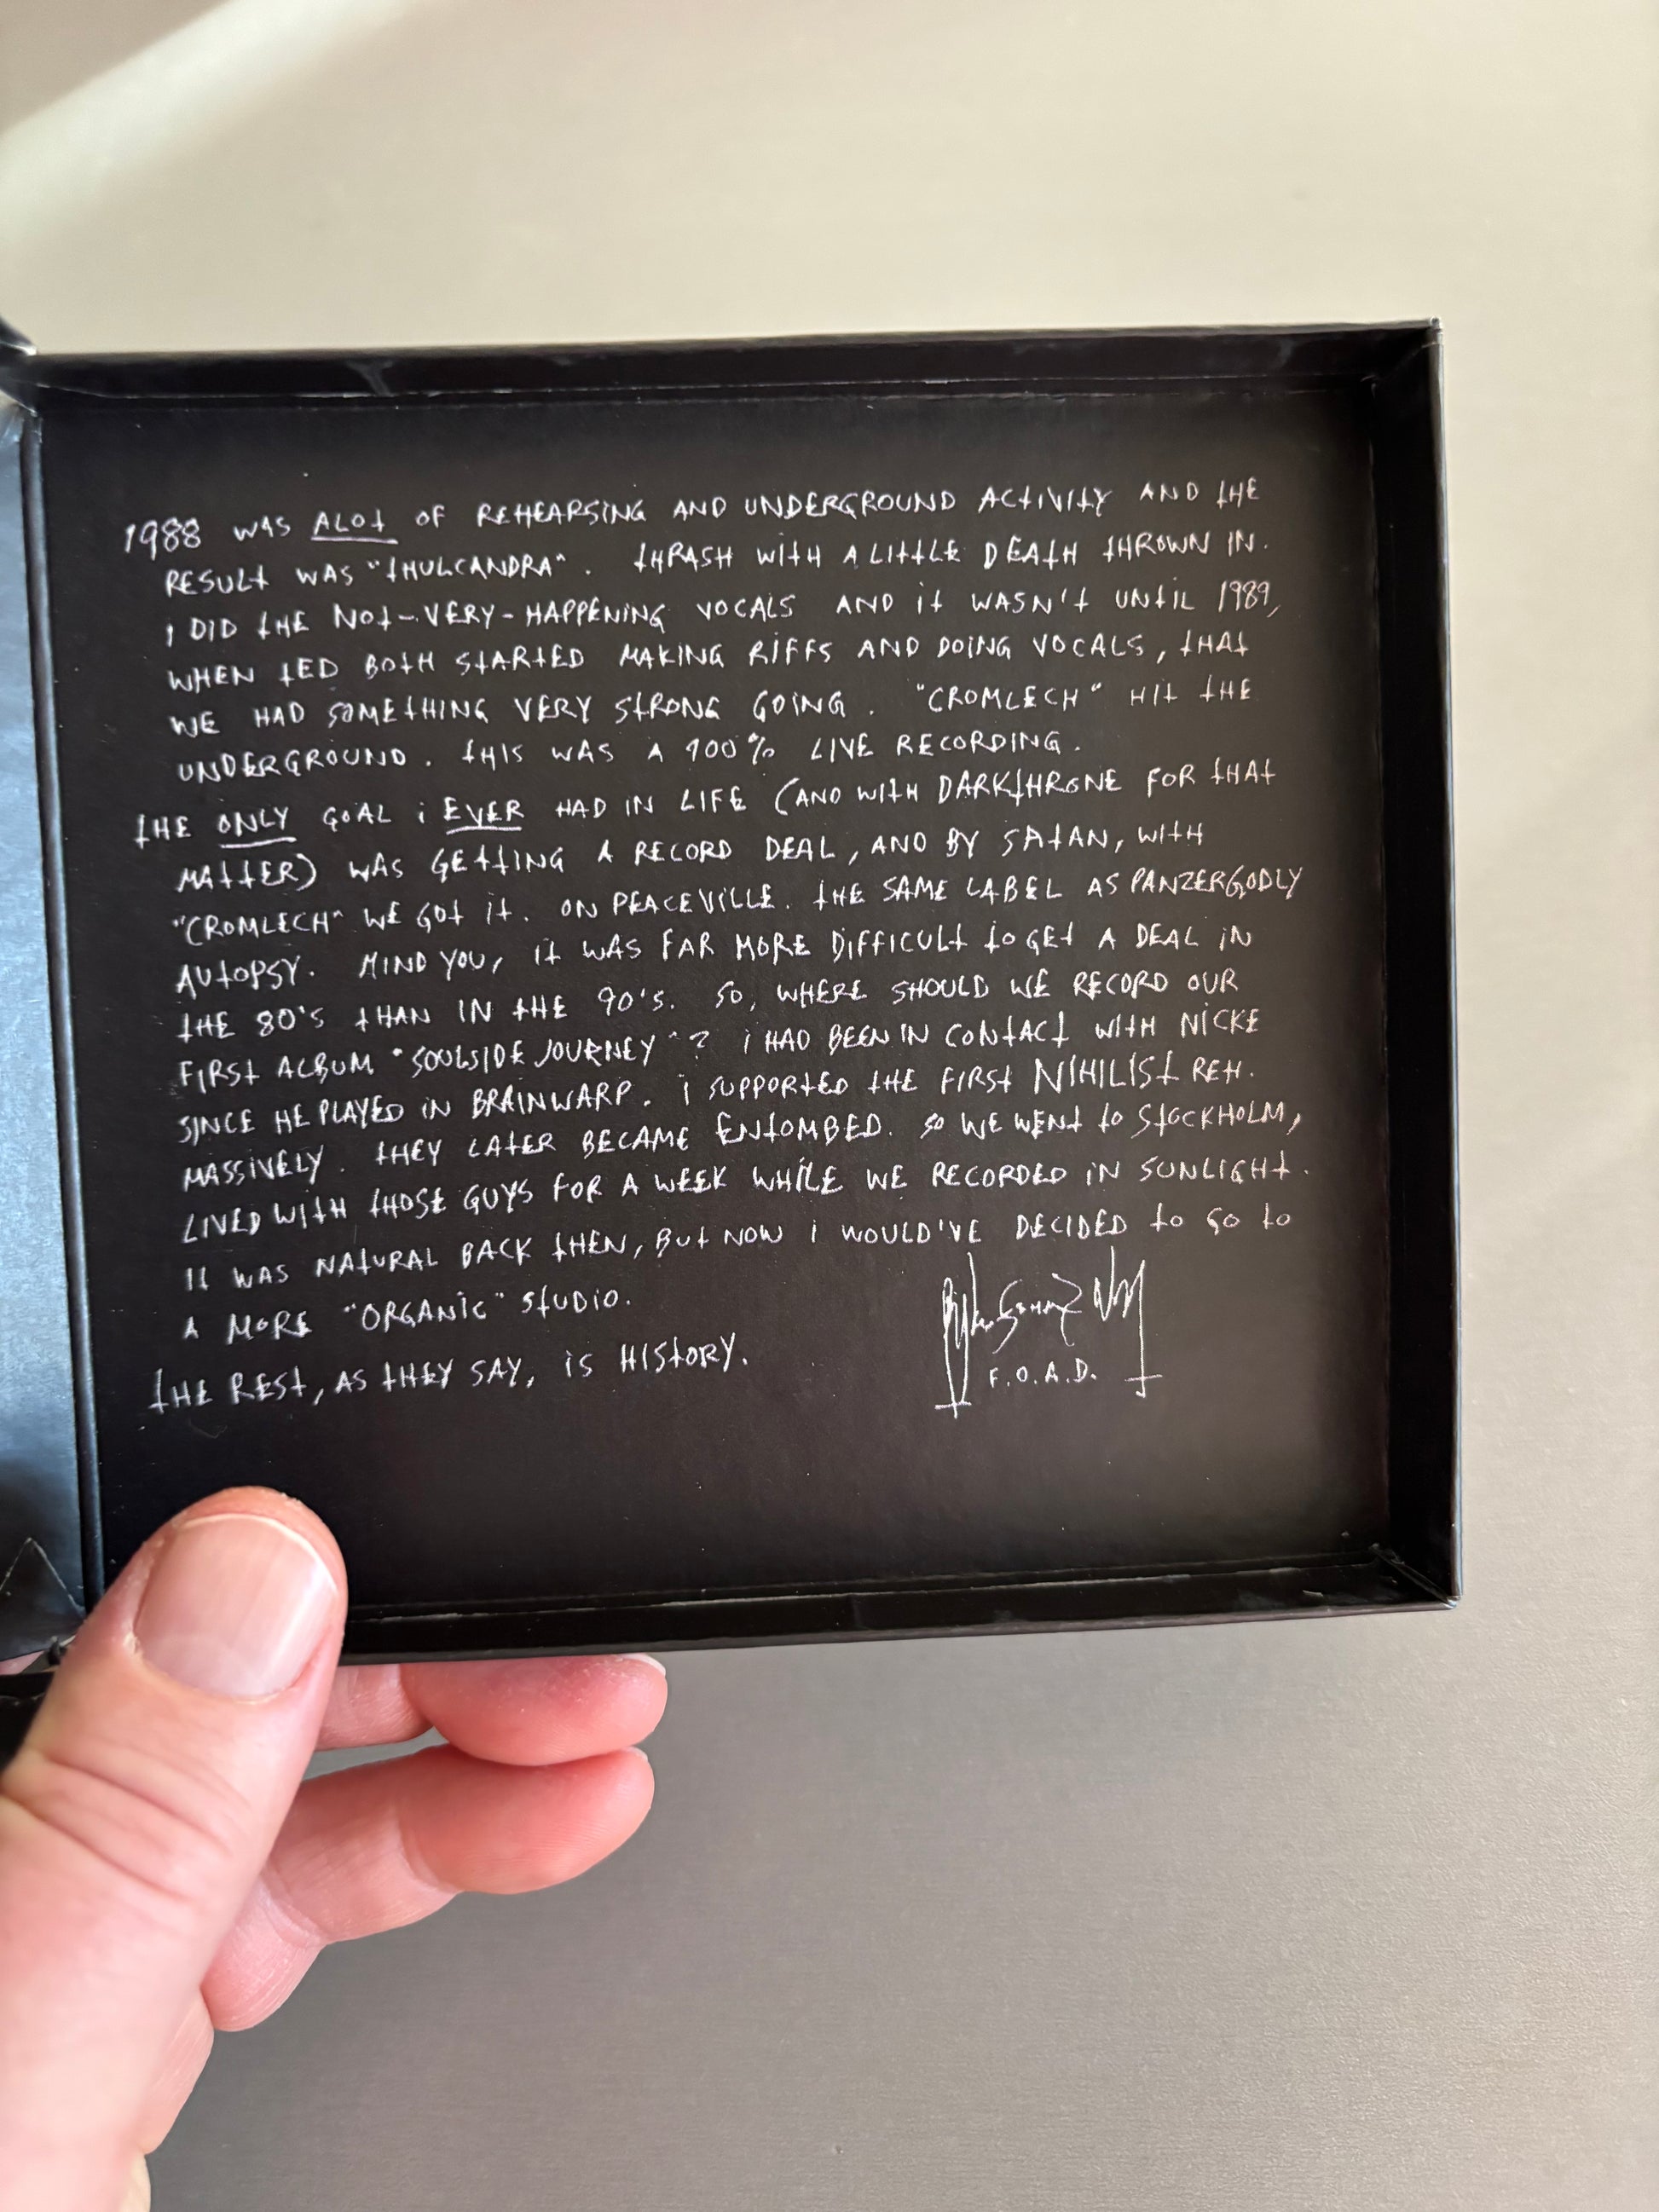 1988 WAS ALOT OF REHEARSING AND UNDERGROUND ACTIVITY AND THE
RESULT WAS "THULCANDRA". THRASH WITH A LITTLE DEATH THROWN IN.
I DID THE NOT-VERY-HAPPENING VOCALS AND IT WASN'T UNTIL 1989,
WHEN TED BOTH STARTED MAKING RIFFS AND DOING VOCALS, THAT
WE HAD SOMETHING VERY STRONG GOING. "CROMLECH" HIT THE
UNDERGROUND. THIS WAS A 900% LIVE RECORDING.
THE ONLY GOAL I EVER HAD IN LIFE (AND WITH DARKTHRONE FOR THAT
MATTER) WAS GETTING A RECORD DEAL, AND BY SATAN, WITH
"CROMLECH" WE GOT IT. ON PEACEVILLE. THE SAME LABEL AS PANZERGODLY
AUTOPSY. MIND YOU, IT WAS FAR MORE DIFFICULT TO GET A DEAL IN
THE 80'S THAN IN THE 90'S. SO, WHERE SHOULD WE RECORD OUR
FIRST ALBUM "SOULSIDE JOURNEY"? I HAD BEEN IN CONTACT WITH NICKE
SINCE HE PLAYED IN BRAINWARP. I SUPPORTED THE FIRST NIHILIST REH.
MASSIVELY. THEY LATER BECAME ENTOMBED. SO WE WENT TO STOCKHOLM,
LIVED WITH THOSE GUYS FOR A WEEK WHILE WE RECORDED IN SUNLIGHT.
IT WAS NATURAL BACK THEN, BUT NOW I WOULD'VE DECIDED TO GO TO
A MORE "ORGANIC" STUDIO.
THE REST, AS THEY SAY, IS HISTORY.
F.O.A.D.